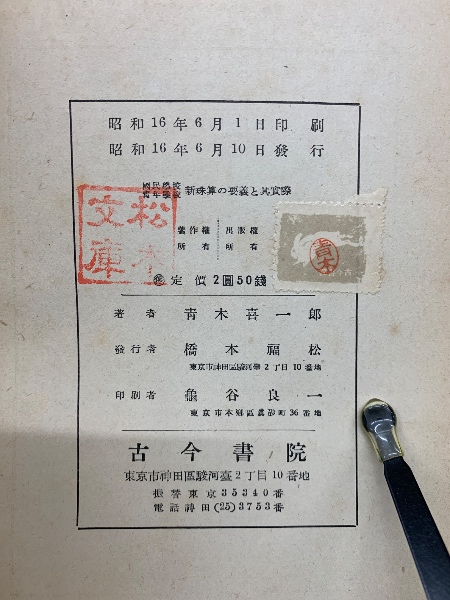 昭和16年6月1日印刷
昭和16年6月10日發行
國民學校
青年學校 新珠算の要義と其實際
著作權 出版權
所有 所有
松本
文庫
青木
定價2圓50錢
著者 青木喜一郎
發行者 橋本福松
東京市神田區駿河臺2丁目10番地
印刷者 龜谷良一
東京市本鄕區眞砂町36番地
古今書院
東京市神田區駿河臺2丁目10番地
振替東京35340番
電話神田(25)3753番